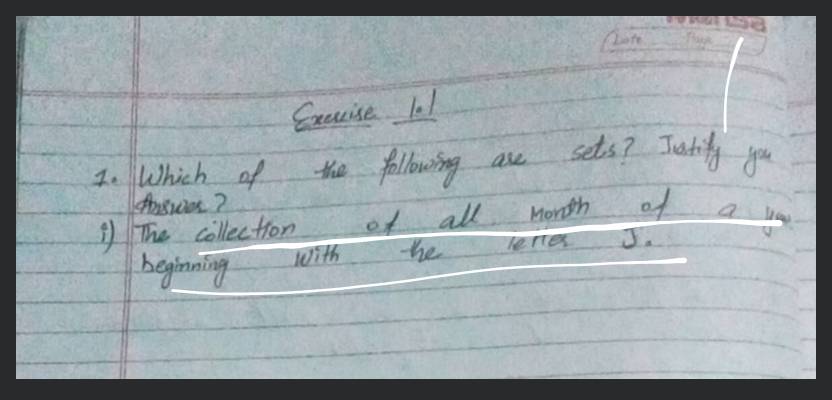 Date Page
Exercise 1.1
1. Which of the following are sets? Justify you
Answer?
i) The collection of all Month of a
beginning with the letter J.